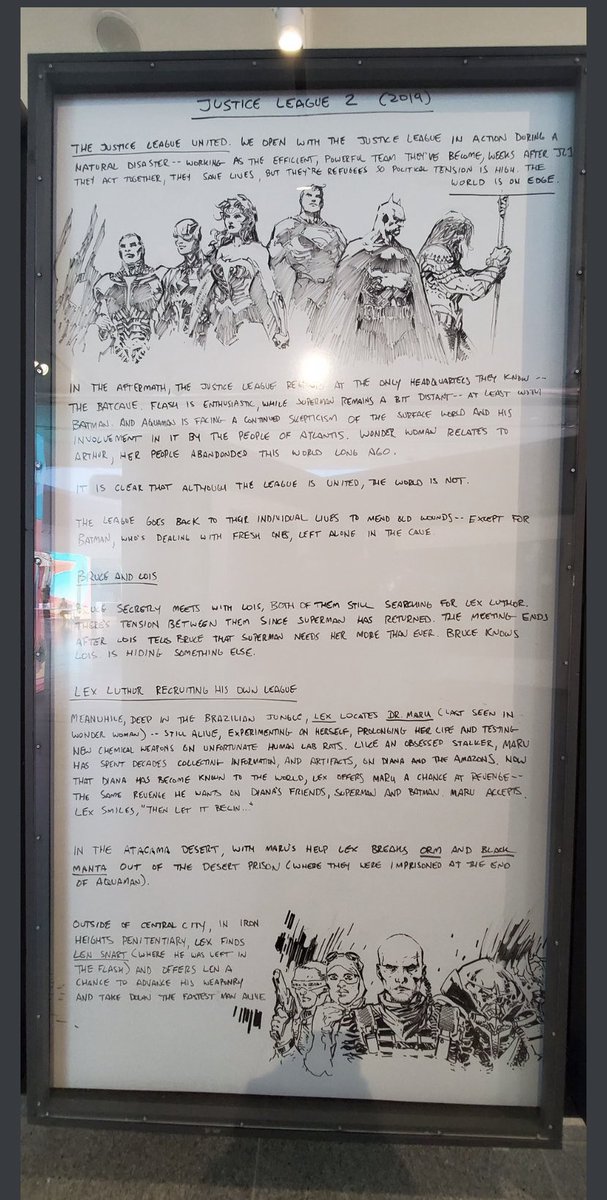 JUSTICE LEAGUE 2 (2019)
THE JUSTICE LEAGUE UNITED. WE OPEN WITH THE JUSTICE LEAGUE IN ACTION DURING A
NATURAL DISASTER -- WORKING AS THE EFFICIENT, POWERFUL TEAM THEY'VE BECOME, WEEKS AFTER JL1
THEY ACT TOGETHER, THEY SAVE LIVES, BUT THEY'RE REFUGEES SO POLITICAL TENSION IS HIGH. THE
WORLD IS ON EDGE.
IN THE AFTERMATH, THE JUSTICE LEAGUE AT THE ONLY HEADQUARTERS THEY KNOW --
THE BATCAVE. FLASH IS ENTHUSIASTIC, WHILE SUPERMAN REMAINS A BIT DISTANT -- AT LEAST WITH
BATMAN. AND AQUAMAN IS FACING A CONTINUED SKEPTICISM OF THE SURFACE WORLD AND HIS
INVOLVEMENT IN IT BY THE PEOPLE OF ATLANTIS. WONDER WOMAN RELATES TO
ARTHUR, HER PEOPLE ABANDONDED THIS WORLD LONG AGO.
IT IS CLEAR THAT ALTHOUGH THE LEAGUE IS UNITED, THE WORLD IS NOT.
THE LEAGUE GOES BACK TO THEIR INDIVIDUAL LIVES TO MEND OLD WOUNDS -- EXCEPT FOR
BATMAN, WHO'S DEALING WITH FRESH ONES, LEFT ALONE IN THE CAVE.
BRUCE AND LOIS
BRUCE SECRETLY MEETS WITH LOIS, BOTH OF THEM STILL SEARCHING FOR LEX LUTHOR.
THERE'S TENSION BETWEEN THEM SINCE SUPERMAN HAS RETURNED. THE MEETING ENDS
AFTER LOIS TELLS BRUCE THAT SUPERMAN NEEDS HER MORE THAN EVER. BRUCE KNOWS
LOIS IS HIDING SOMETHING ELSE.
LEX LUTHOR RECRUITING HIS OWN LEAGUE
MEANWHILE, DEEP IN THE BRAZILIAN JUNGLE, LEX LOCATES DR. MARU (LAST SEEN IN
WONDER WOMAN) -- STILL ALIVE, EXPERIMENTING ON HERSELF, PROLONGING HER LIFE AND TESTING
NEW CHEMICAL WEAPONS ON UNFORTUNATE HUMAN LAB RATS. LIKE AN OBSESSED STALKER, MARU
HAS SPENT DECADES COLLECTING INFORMATION, AND ARTIFACTS, ON DIANA AND THE AMAZONS. NOW
THAT DIANA HAS BECOME KNOWN TO THE WORLD, LEX OFFERS MARU A CHANCE AT REVENGE --
THE SAME REVENGE HE WANTS ON DIANA'S FRIENDS, SUPERMAN AND BATMAN. MARU ACCEPTS.
LEX SMILES, "THEN LET IT BEGIN..."
IN THE ATACAMA DESERT, WITH MARU'S HELP LEX BREAKS ORM AND BLACK
MANTA OUT OF THE DESERT PRISON (WHERE THEY WERE IMPRISONED AT THE END
OF AQUAMAN).
OUTSIDE OF CENTRAL CITY, IN IRON
HEIGHTS PENITENTIARY, LEX FINDS
LEN SNART (WHERE HE WAS LEFT IN
THE FLASH) AND OFFERS LEN A
CHANCE TO ADVANCE HIS WEAPONRY
AND TAKE DOWN THE FASTEST MAN ALIVE